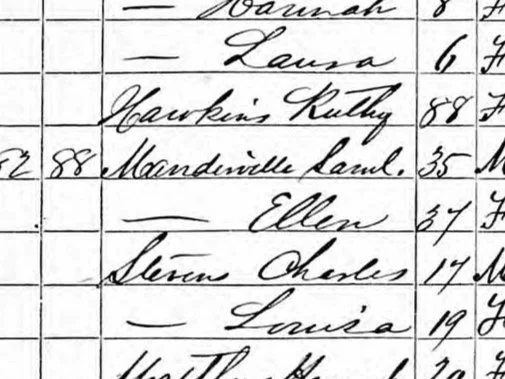 — Hannah 8 F
— Laura 6 F
Hawkins Ruthy 88 F
82 88 Mandeville Saml. 35 M
— Ellen 37 F
Stevens Charles 17 M
— Louisa 19 F